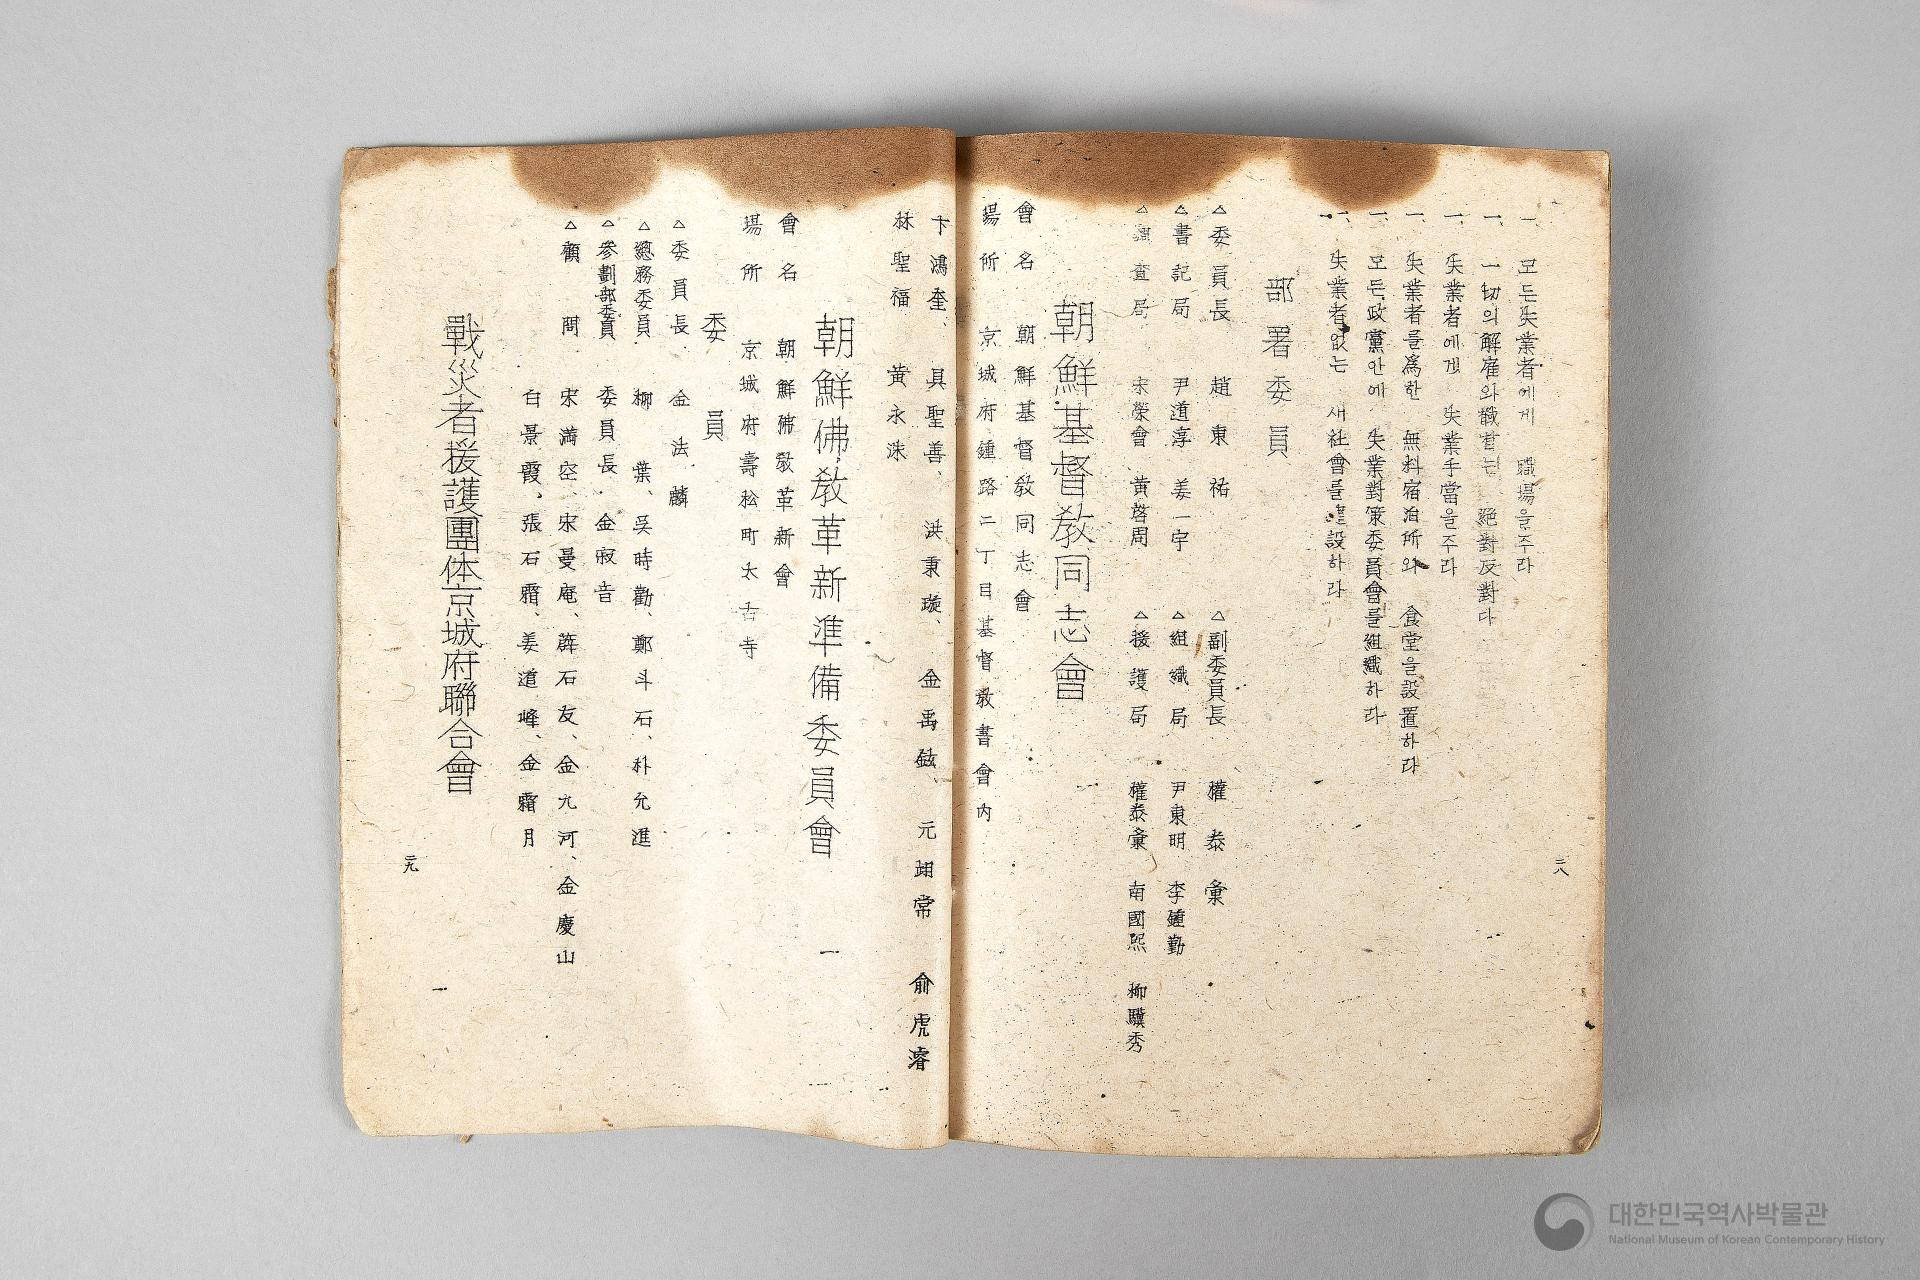 一、모든失業者에게 職場을주라
一、一切의解雇와 絶對反對다
一、失業者에게 失業手當을주라
一、失業者를爲한 無料宿泊所와 食堂을設置하라
一、모든政黨안에 失業對策委員會를組織하라
一、失業者없는 새社會를建設하라
部署委員
△委員長 趙東祐 △副委員長 權泰彙
△書記局 尹道淳 姜一宇 △組織局 尹東明 李鍾勤
△調査局 宋榮會 黃啓周 △援護局 權泰彙 南國熙 柳驥秀
二八
朝鮮基督敎同志會
會名 朝鮮基督敎同志會
場所 京城府鍾路二丁目基督敎書會內
卞鴻奎、具聖善、洪秉璇、金禹鉉、元翊常 兪虎濬
林聖福 黃永洙
朝鮮佛敎革新準備委員會 一
會名 朝鮮佛敎革新會
場所 京城府壽松町太古寺
委員
△委員長 金法麟
△總務委員 柳葉、吳時勸、鄭斗石、朴允進
△參劃部委員 委員長 金寂音
△顧問 宋滿空、宋曼庵、薛石友、金九河、金慶山
白景霞、張石霜、姜道峰、金霜月
戰災者援護團体京城府聯合會 一
二九
대한민국역사박물관
National Museum of Korean Contemporary History